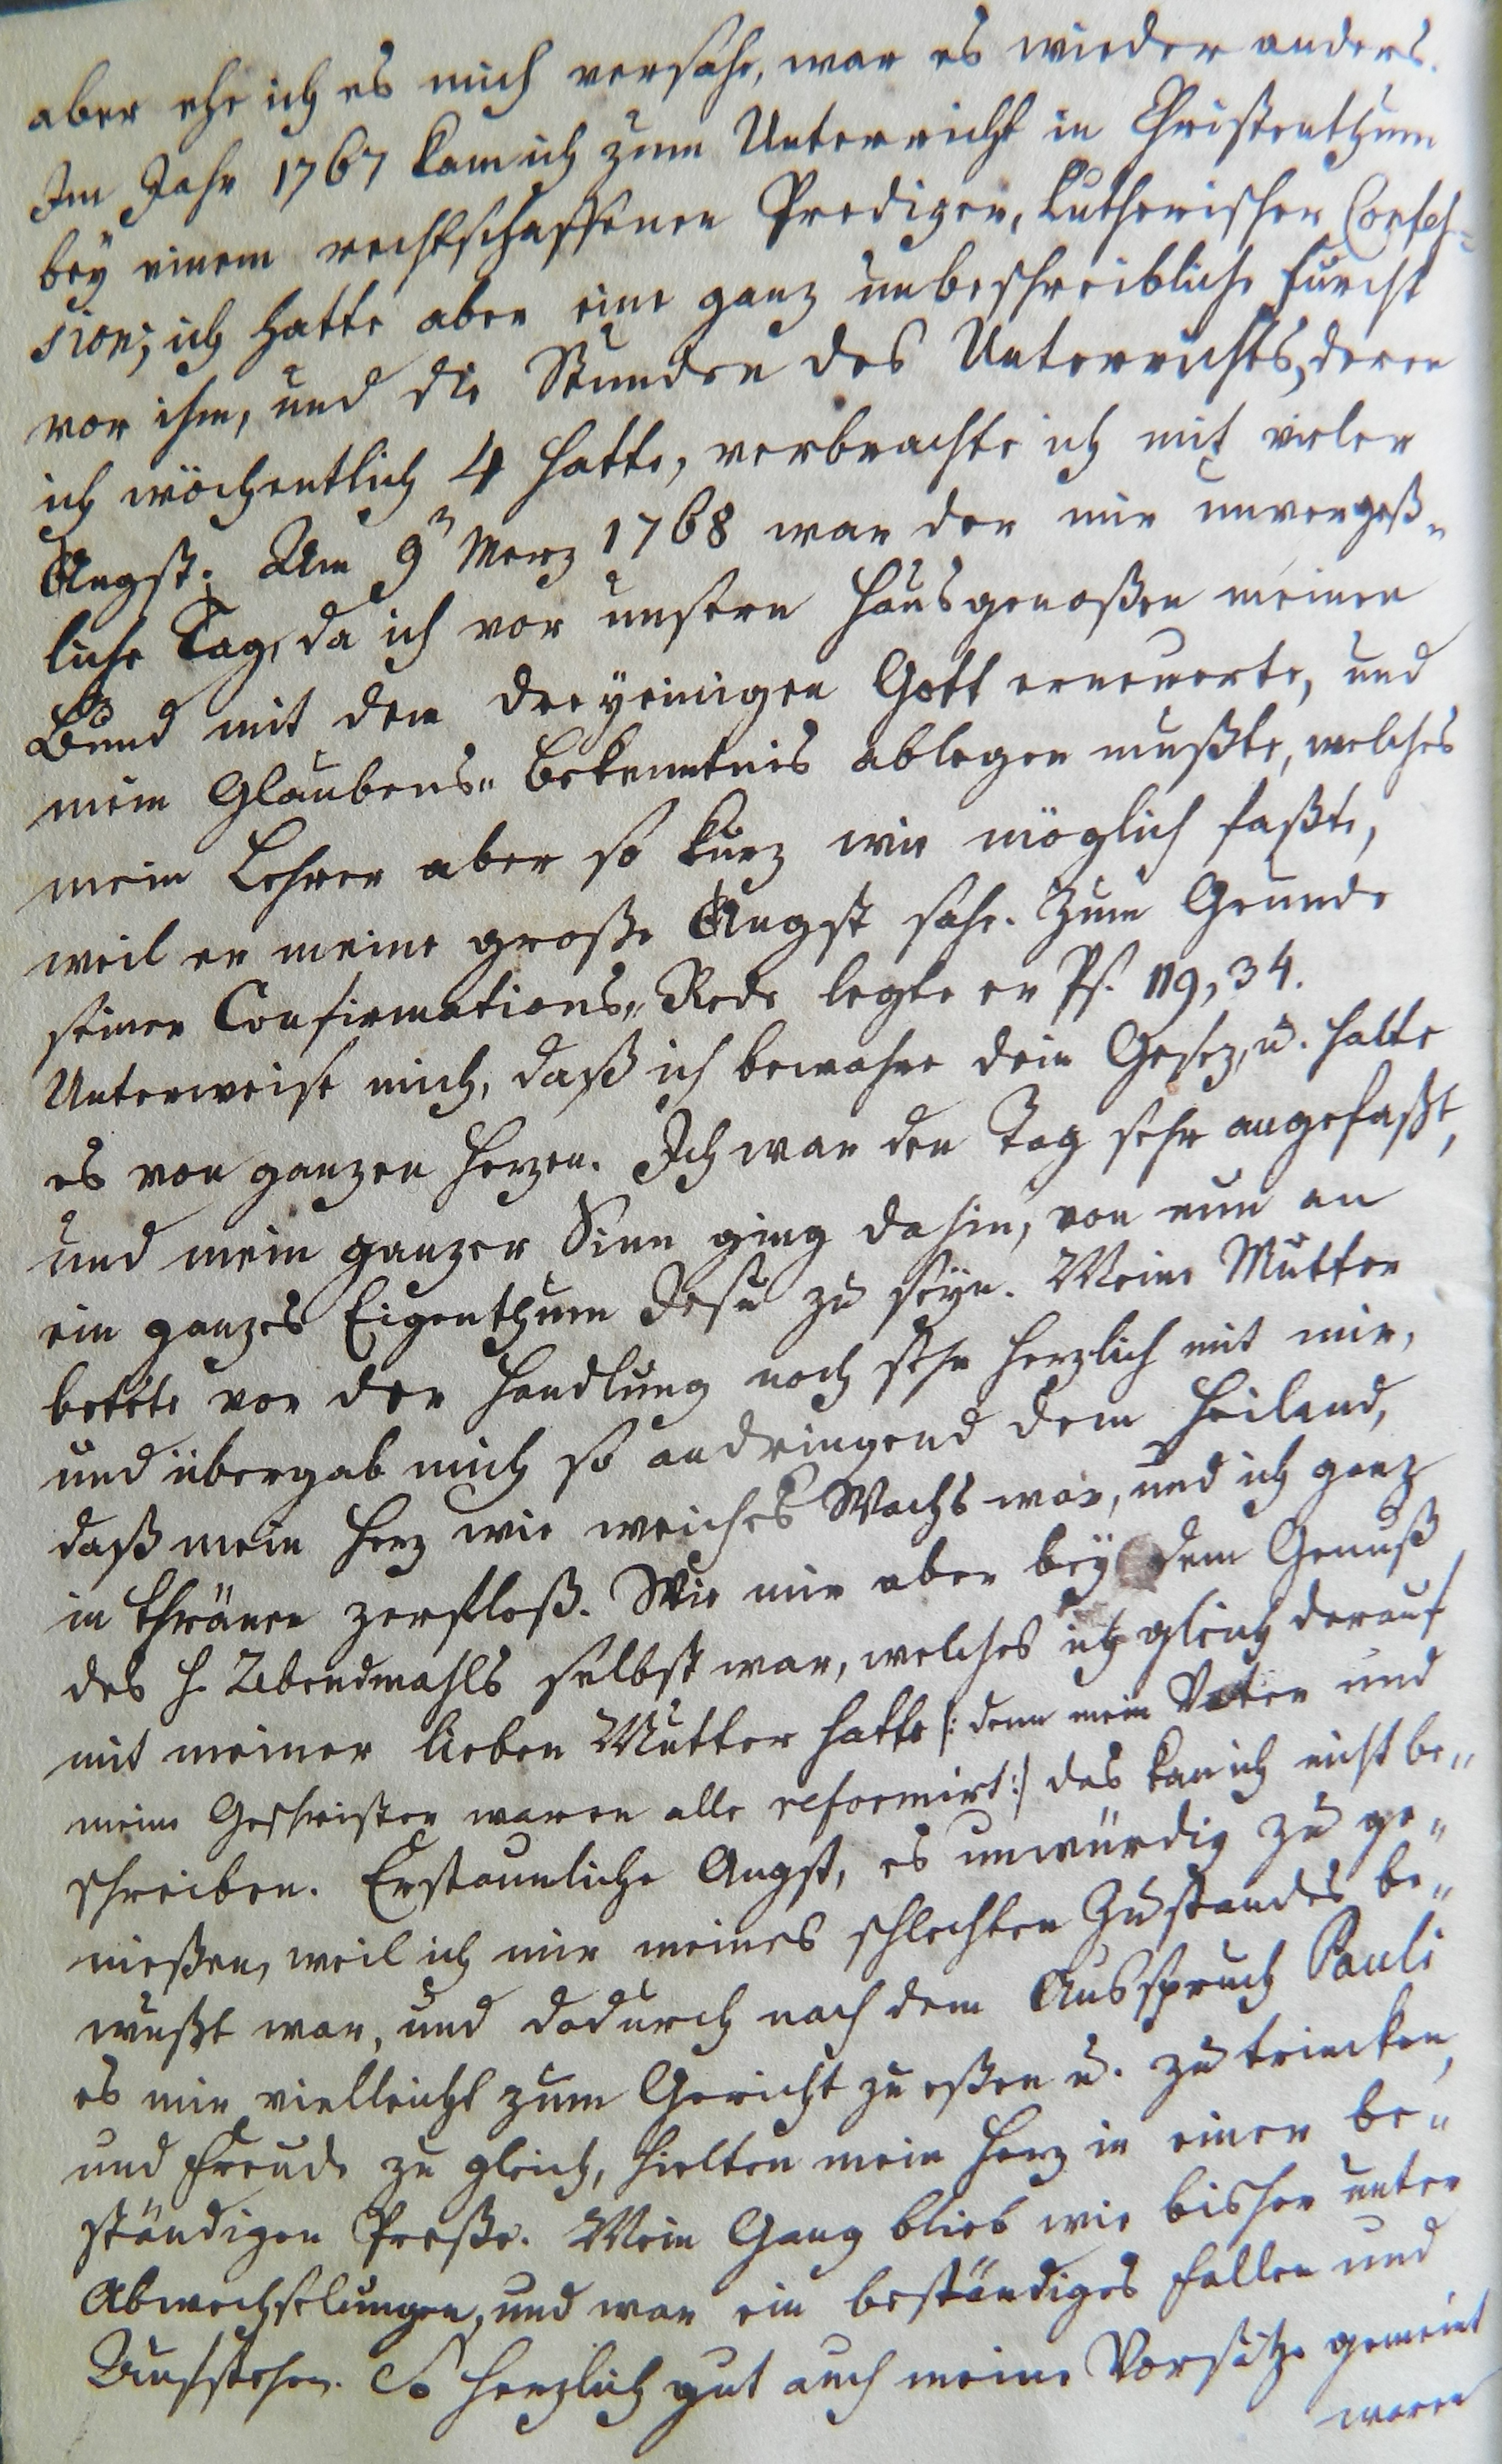 aber ehe ich es mich versahe, war es wieder anders.
Im Jahr 1767 kam ich zum Unterricht in Christenthum
bey einem rechtschaffenen Prediger, Lutherischer Confes-
sion; ich hatte aber eine ganz unbeschreibliche Furcht
vor ihm, und die Stunden des Unterrichts, deren
ich wöchentlich 4 hatte, verbrachte ich mit vieler
Angst. Am 9n Merz 1768 war der mir unvergeß-
liche Tag, da ich vor unsern Hausgenoßen meinen
Bund mit dem dreyeinigen Gott erneuerte, und
mein Glaubens-Bekenntnis ablegen mußte, welches
mein Lehrer aber so kurz wie möglich faßte,
weil er meine große Angst sahe. Zum Grunde
seiner Confirmations-Rede legte er Ps. 119,34.
Unterweise mich, daß ich bewahre dein Gesez, u. halte
es von ganzen Herzen. Ich war den Tag sehr angefaßt,
und mein ganzer Sinn ging dahin, von nun an
ein ganzes Eigenthum Jesu zu seyn. Meine Mutter
betete vor der Handlung noch sehr herzlich mit mir,
und übergab mich so andringend dem Heiland,
daß mein Herz wie weiches Wachs war, und ich ganz
in Thränen zerfloß. Wie mir aber bey dem Genuß
des H. Abendmahls selbst war, welches ich gleich darauf
mit meiner lieben Mutter hatte /: denn mein Vater und
meine Geschwister waren alle reformirt :/ das kan ich nicht be-
schreiben. Erstaunliche Angst, es unwürdig zu ge-
nießen, weil ich mir meines schlechten Zustandes be-
wußt war, und dadurch nach dem Ausspruch Pauli
es mir vielleicht zum Gericht zu eßen u. zu trincken,
und Freude zu gleich, hielten mein Herz in einer be-
ständigen Preße. Mein Gang blieb wie bisher unter
Abwechselungen, und war ein beständiges Fallen und
Aufstehen. So herzlich gut auch meine Vorsätze gemeint
waren